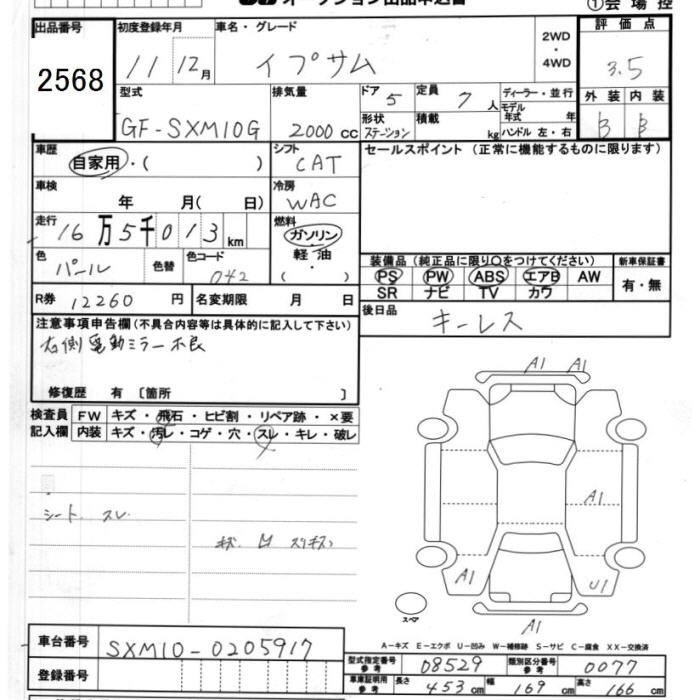 オークション出品申込書
①会場控
出品番号 初度登録年月 車名・グレード 2WD・4WD 評価点
2568 11 12月 イプサム 3.5
型式 排気量 ドア 5 定員 7人 ディーラー・並行 外装 内装
モデル年式 年
GF-SXM10G 2000cc 形状 ステーション 積載 kg ハンドル 左・右 B B
車歴 自家用・( ) シフト CAT セールスポイント (正常に機能するものに限ります)
車検 年 月( 日) 冷房 WAC
走行 16万5千013km 燃料 ガソリン・軽油・( )
色 パール 色替 色コード 042
装備品 (純正品に限り○をつけてください) 新車保証書
PS PW ABS エアB AW 有・無
SR ナビ TV カワ
R券 12260円 名変期限 月 日 後日品 キーレス
注意事項申告欄(不具合内容等は具体的に記入して下さい)
右側電動ミラー不良
修復歴 有〔箇所 〕
検査員記入欄 FW キズ・飛石・ヒビ割・リペア跡・×要
内装 キズ・汚レ・コゲ・穴・スレ・キレ・破レ
A1 A1
A1
シート スレ
A1 U1
スペア A1
A-キズ E-エクボ U-凹み W-補修跡 S-サビ C-腐食 XX-交換済
車台番号 SXM10-0205917
型式指定番号 参考 08529 類別区分番号 参考 0077
登録番号 車庫証明用 参考 長さ 453cm 幅 169cm 高さ 166cm